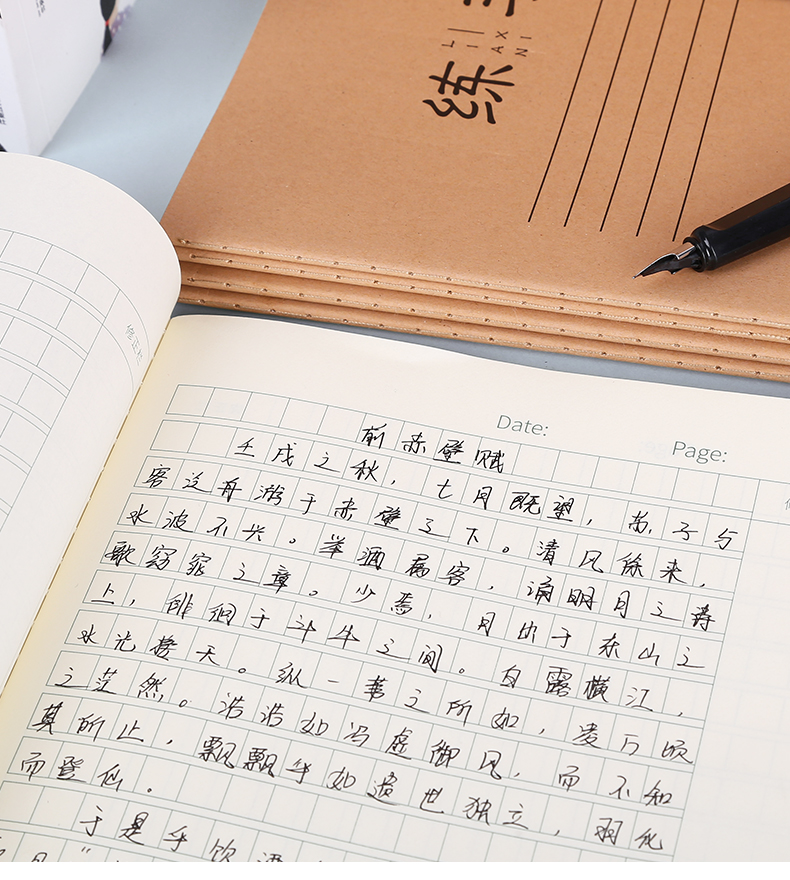 练
LIAN
XI
Date:
Page:
前赤壁赋
壬戌之秋，七月既望，苏子与
客泛舟游于赤壁之下。清风徐来，
水波不兴。举酒属客，诵明月之
歌窈窕之章。少焉，月出于东山之
上，徘徊于斗牛之间。白露横江，
水光接天。纵一苇之所如，凌万顷
之茫然。浩浩如冯虚御风，而不知
其所止，飘飘乎如遗世独立，羽化
而登仙。
于是乎饮酒